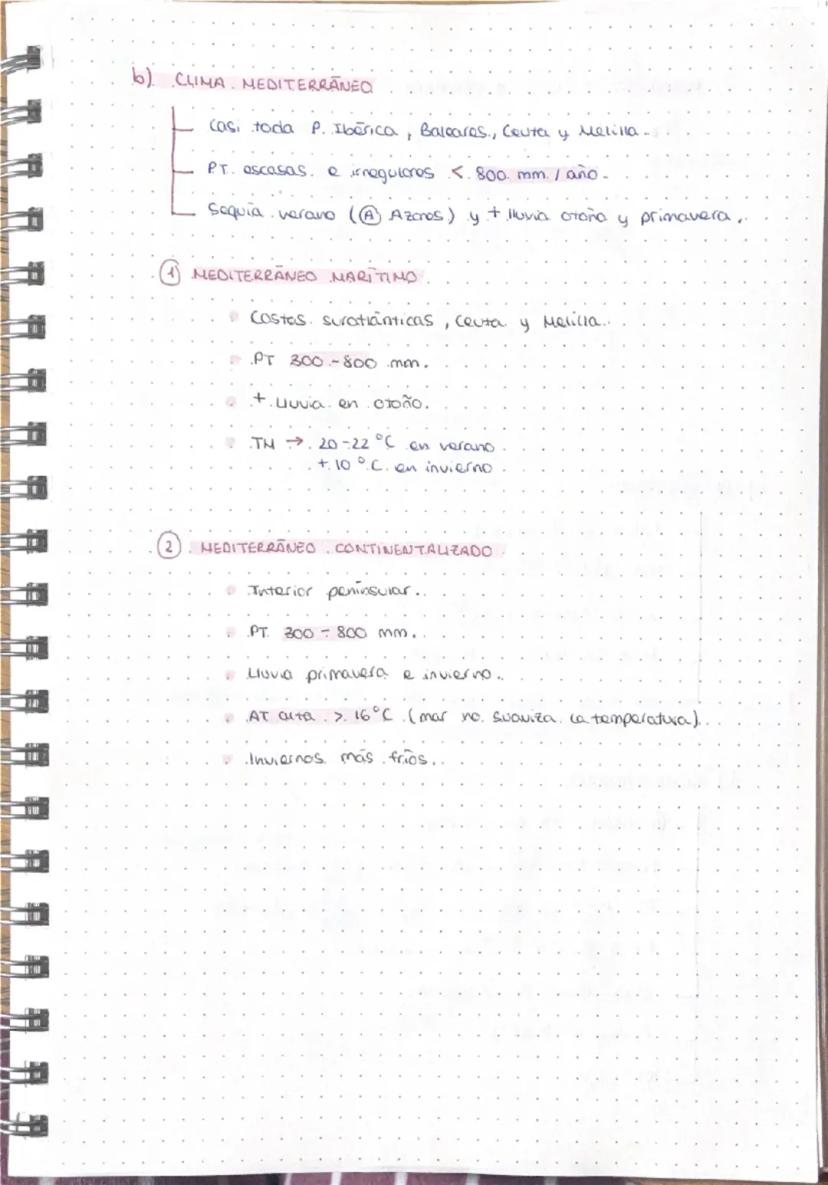 b) CLIMA MEDITERRÁNEO
Casi toda P. Ibérica, Baleares, Ceuta y Melilla.
PT. escasas e irregulares < 800 mm / año.
Sequía verano (A Azores) y + lluvia otoño y primavera.
1 MEDITERRÁNEO MARÍTIMO
Costas suratlánticas, Ceuta y Melilla.
PT 300-800 mm.
+ lluvia en otoño.
TM → 20-22 °C en verano
+ 10 °C en invierno
2 MEDITERRÁNEO CONTINENTALIZADO
Interior peninsular.
PT 300-800 mm.
Lluvia primavera e invierno.
AT alta > 16°C (mar no suaviza la temperatura).
Inviernos más fríos.